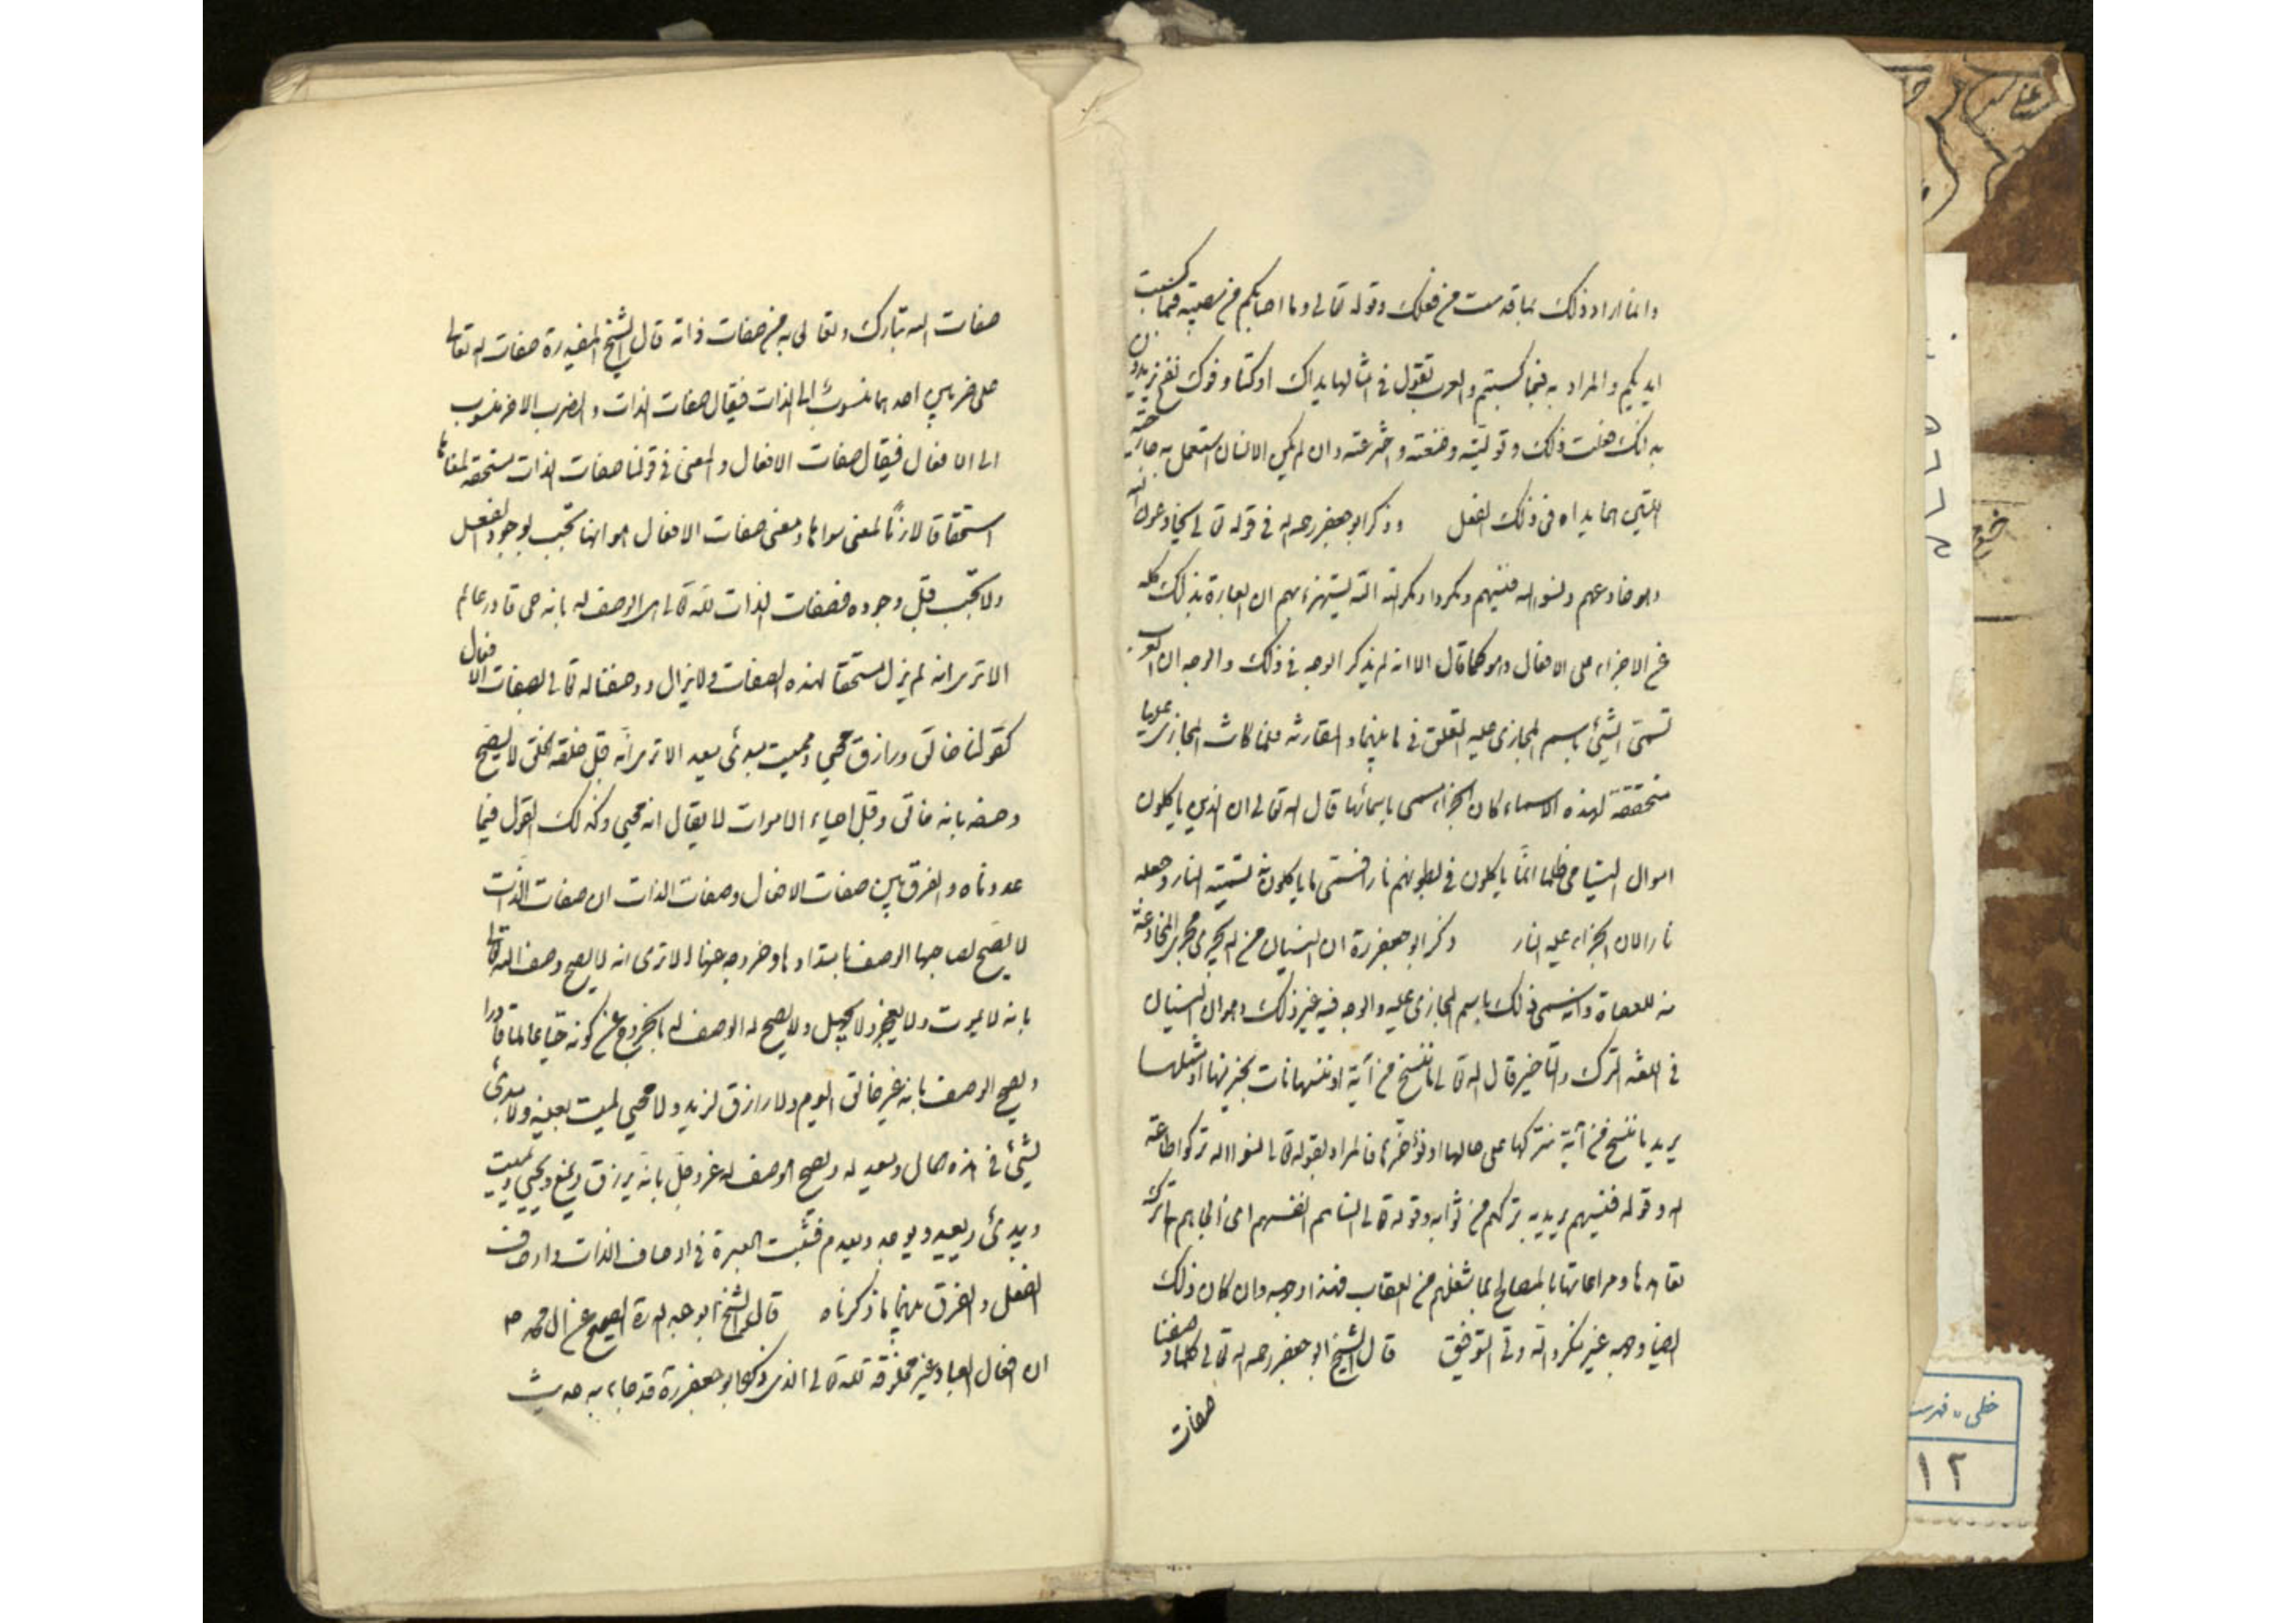 وانما اراد ذلك بما قدمت من فعلك وقوله تعالى وما اصابكم من مصيبة فبما كسبت
ايديكم والمراد به فبما كسبتم والعرب تقول في امثالها يداك اوكتا وفوك نفخ يريدون
به انك فعلت ذلك وتوليته وصنعته واخترعته وان لم يكن الانسان استعمل به جارحتيه
اللتين هما يداه في ذلك الفعل وذكر ابو جعفر رحمه الله في قوله تعالى يخادعون الله
وهو خادعهم ونسوا الله فنسيهم ومكروا ومكر الله الله يستهزء بهم ان العبارة بذلك كله
عن الاجزاء على الافعال وهو كما قال الا انه لم يذكر الوجه في ذلك والوجه ان العرب
تسمى الشيئ باسم المجازى عليه للتعلق في ما بينهما والمقارنة فلما كانت المجازى عليها
مستحقة لهذه الاسماء كان الجزاء مسمى باسمائها قال الله تعالى ان الذين ياكلون
اموال اليتامى ظلما انما ياكلون في بطونهم نارا فسمى ما ياكلونه تسمية النار وجعله
نارا لان الجزاء عليه النار وذكر ابو جعفر ره ان النسيان من الله يجري مجرى المخادعة
منه للعصاة وانه سمى ذلك باسم المجازى عليه والوجه فيه غير ذلك وهو ان النسيان
في اللغة الترك والتاخير قال الله تعالى ما ننسخ من آية او ننسها نات بخير منها او مثلها
يريد ما ننسخ من آية نتركها على حالها او نؤخرها فالمراد بقوله تعالى نسوا الله تركوا طاعة
الله وقوله فنسيهم يريد به تركهم من ثوابه وقوله تعالى انساهم انفسهم اي الجاهم الى ترك
تعاهدها ومراعاتها بالمصالح بما شغلهم من العقاب فهذا وجه وان كان ذلك
ايضا وجه غير منكر والله ولي التوفيق قال الشيخ ابو جعفر رحمه الله تعالى كلما وصفنا
صفات
صفات الله تبارك وتعالى به من صفات ذاته قال الشيخ المفيد ره صفات الله تعالى
على ضربين احدهما منسوب الى الذات فيقال صفات الذات والضرب الاخر منسوب
الى الافعال فيقال صفات الافعال والمعنى في قولنا صفات الذات مستحقة لمعناها
استحقاقا لازما لمعنى سواها ومعنى صفات الافعال هو انها تجب بوجود الفعل
ولا تجب قبل وجوده فصفات الذات لله تعالى هي الوصف له بانه حي قادر عالم
الا ترى انه لم يزل مستحقا لهذه الصفات ولا يزال ووصفنا له تعالى بصفات الافعال
كقولنا خالق ورازق محيي ومميت مبدئ معيد الا ترى انه قبل خلقه الخلق لا يصح
وصفه بانه خالق وقبل احياء الاموات لا يقال انه محيي وكذلك القول فيما
عددناه والفرق بين صفات الافعال وصفات الذات ان صفات الذات
لا يصح لصاحبها الوصف باضدادها وخروجه عنها الا ترى انه لا يصح وصف الله تعالى
بانه لا يموت ولا يعجز ولا يجهل ولا يصح له الوصف له بالخروج عن كونه حيا عالما قادرا
ويصح الوصف بانه غير خالق اليوم ولا رازق لزيد ولا محيي لميت بعينه ولا مبدئ
لشيئ في هذه الحال ولا معيد له ويصح الوصف له عز وجل بانه يرزق ويمنع ويحيي ويميت
ويبدئ ويعيد ويوجد ويعدم فثبت العبرة في اوصاف الذات واوصاف
الفعل والفرق بينهما ما ذكرناه قال الشيخ ابو عبد الله ره الصحيح عن ال محمد ص
ان افعال العباد غير مخلوقة لله تعالى الذي ذكره ابو جعفر ره قد جاء به حديث
خطی - فهرست
١٢